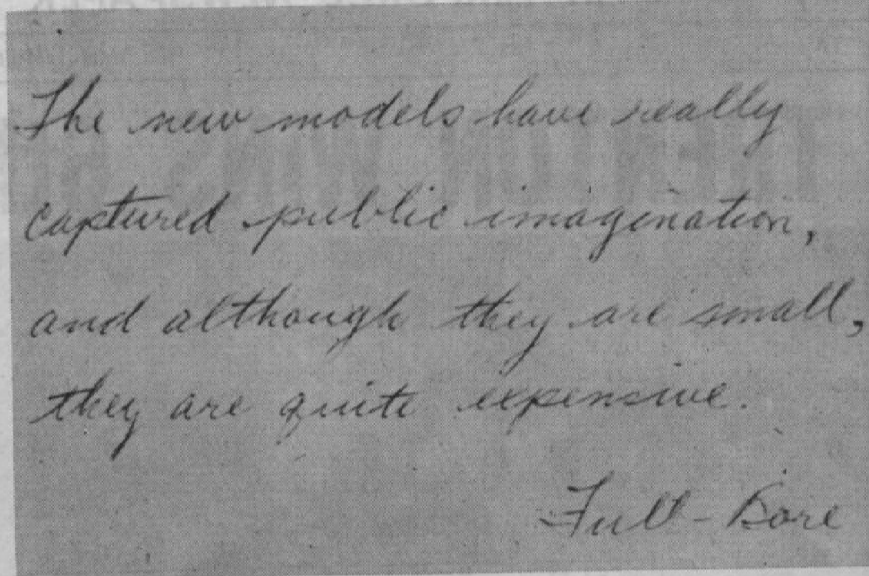 The new models have really
captured public imagination,
and although they are small,
they are quite expensive.
Full-Bore